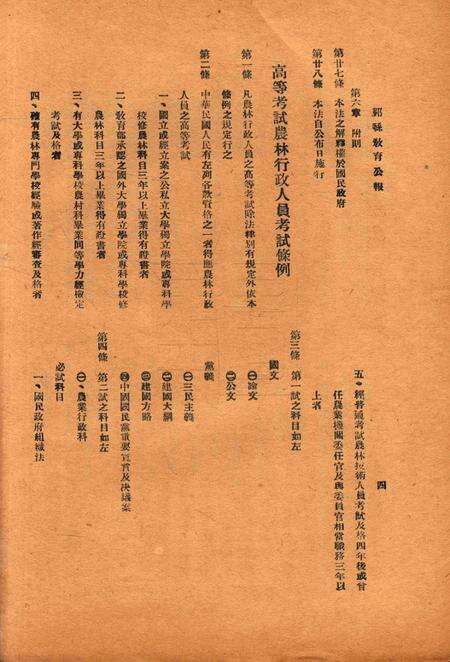 郫縣教育公報
四
第六章　附則
第廿七條　本法之解釋權於國民政府
第廿八條　本法自公布日施行
高等考試農林行政人員考試條例
第一條　凡農林行政人員之高等考試除法律別有規定外依本
條例之規定行之
第二條　中華民國人民有左列各款資格之一者得應農林行政
人員之高等考試
一、國立或經立案之公私立大學獨立學院或專科學
校修農林科目三年以上畢業得有證書者
二、教育部承認之國外大學獨立學院或專科學校修
農林科目三年以上畢業得有證書者
三、有大學或專科學校農村科畢業同等學力經檢定
考試及格者
四、確有農林專門學術經驗或著作經審查及格者
五、經普通考試農林技術人員考試及格四年後或曾
任農業機關委任官及與委任官相當職務三年以
上者
第三條　第一試之科目如左
國文
㊀論文
㊁公文
黨義
㊀三民主義
㊁建國大綱
㊂建國方略
㊃中國國民黨重要宣言及決議案
第四條　第二試之科目如左
㊀、農業行政科
必試科目
一、國民政府組織法